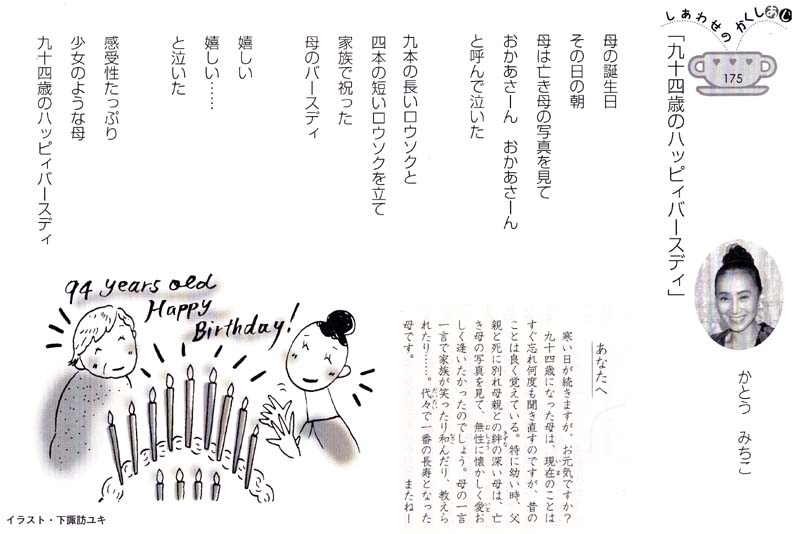 しあわせのかくしあじ
175
「九十四歳のハッピィバースディ」
かとう みちこ
母の誕生日
その日の朝
母は亡き母の写真を見て
おかあさーん おかあさーん
と呼んで泣いた
九本の長いロウソクと
四本の短いロウソクを立て
家族で祝った
母のバースディ
嬉しい
嬉しい……
と泣いた
感受性たっぷり
少女のような母
九十四歳のハッピィバースディ
あなたへ
寒い日が続きますが、お元気ですか?
九十四歳になった母は、現在のことは
すぐ忘れ何度も聞き直すのですが、昔の
ことは良く覚えている。特に幼い時、父
親と死に別れ母親との絆の深い母は、亡
き母の写真を見て、無性に懐かしく愛お
しく逢いたかったのでしょう。母の一言
一言で家族が笑ったり和んだり、教えら
れたり……。代々で一番の長寿となった
母です。 またねー
94 years old
Happy
Birthday!
イラスト・下諏訪ユキ